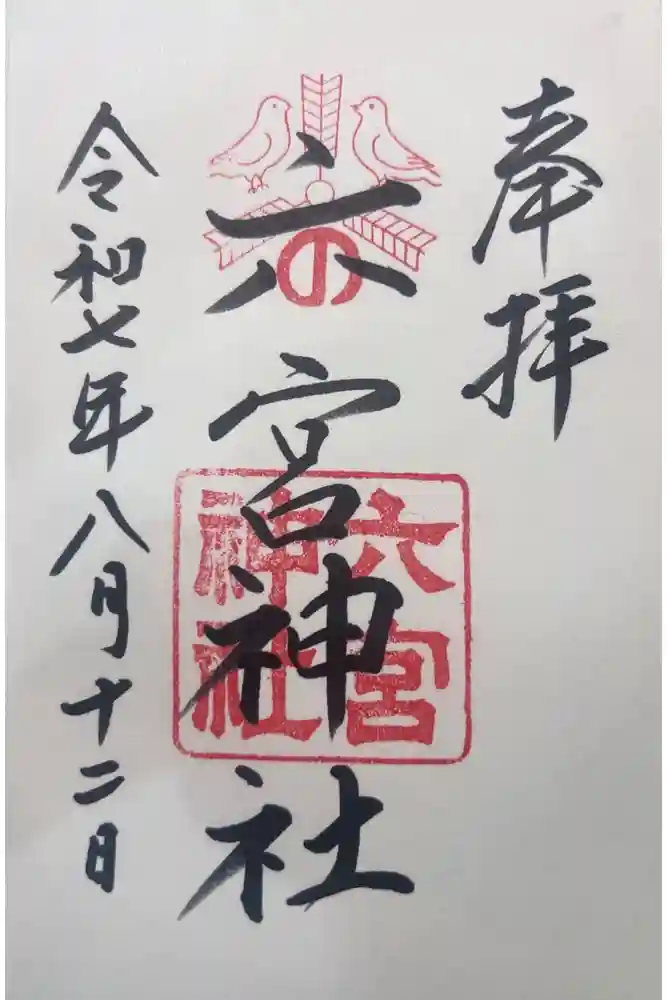 奉拝
六宮神社
の
六宮神社
令和七年八月十二日